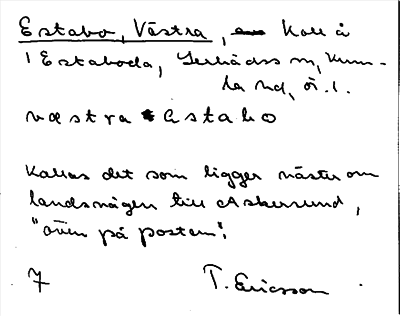 Estabo, Västra, Koll å
i Estaboda, Lerbäcks sn, Kum-
la hd, Ör. l.
västra estabo
Kallas det som ligger väster om
landsvägen till Askersund,
"även på posten".
7 T. Ericsson